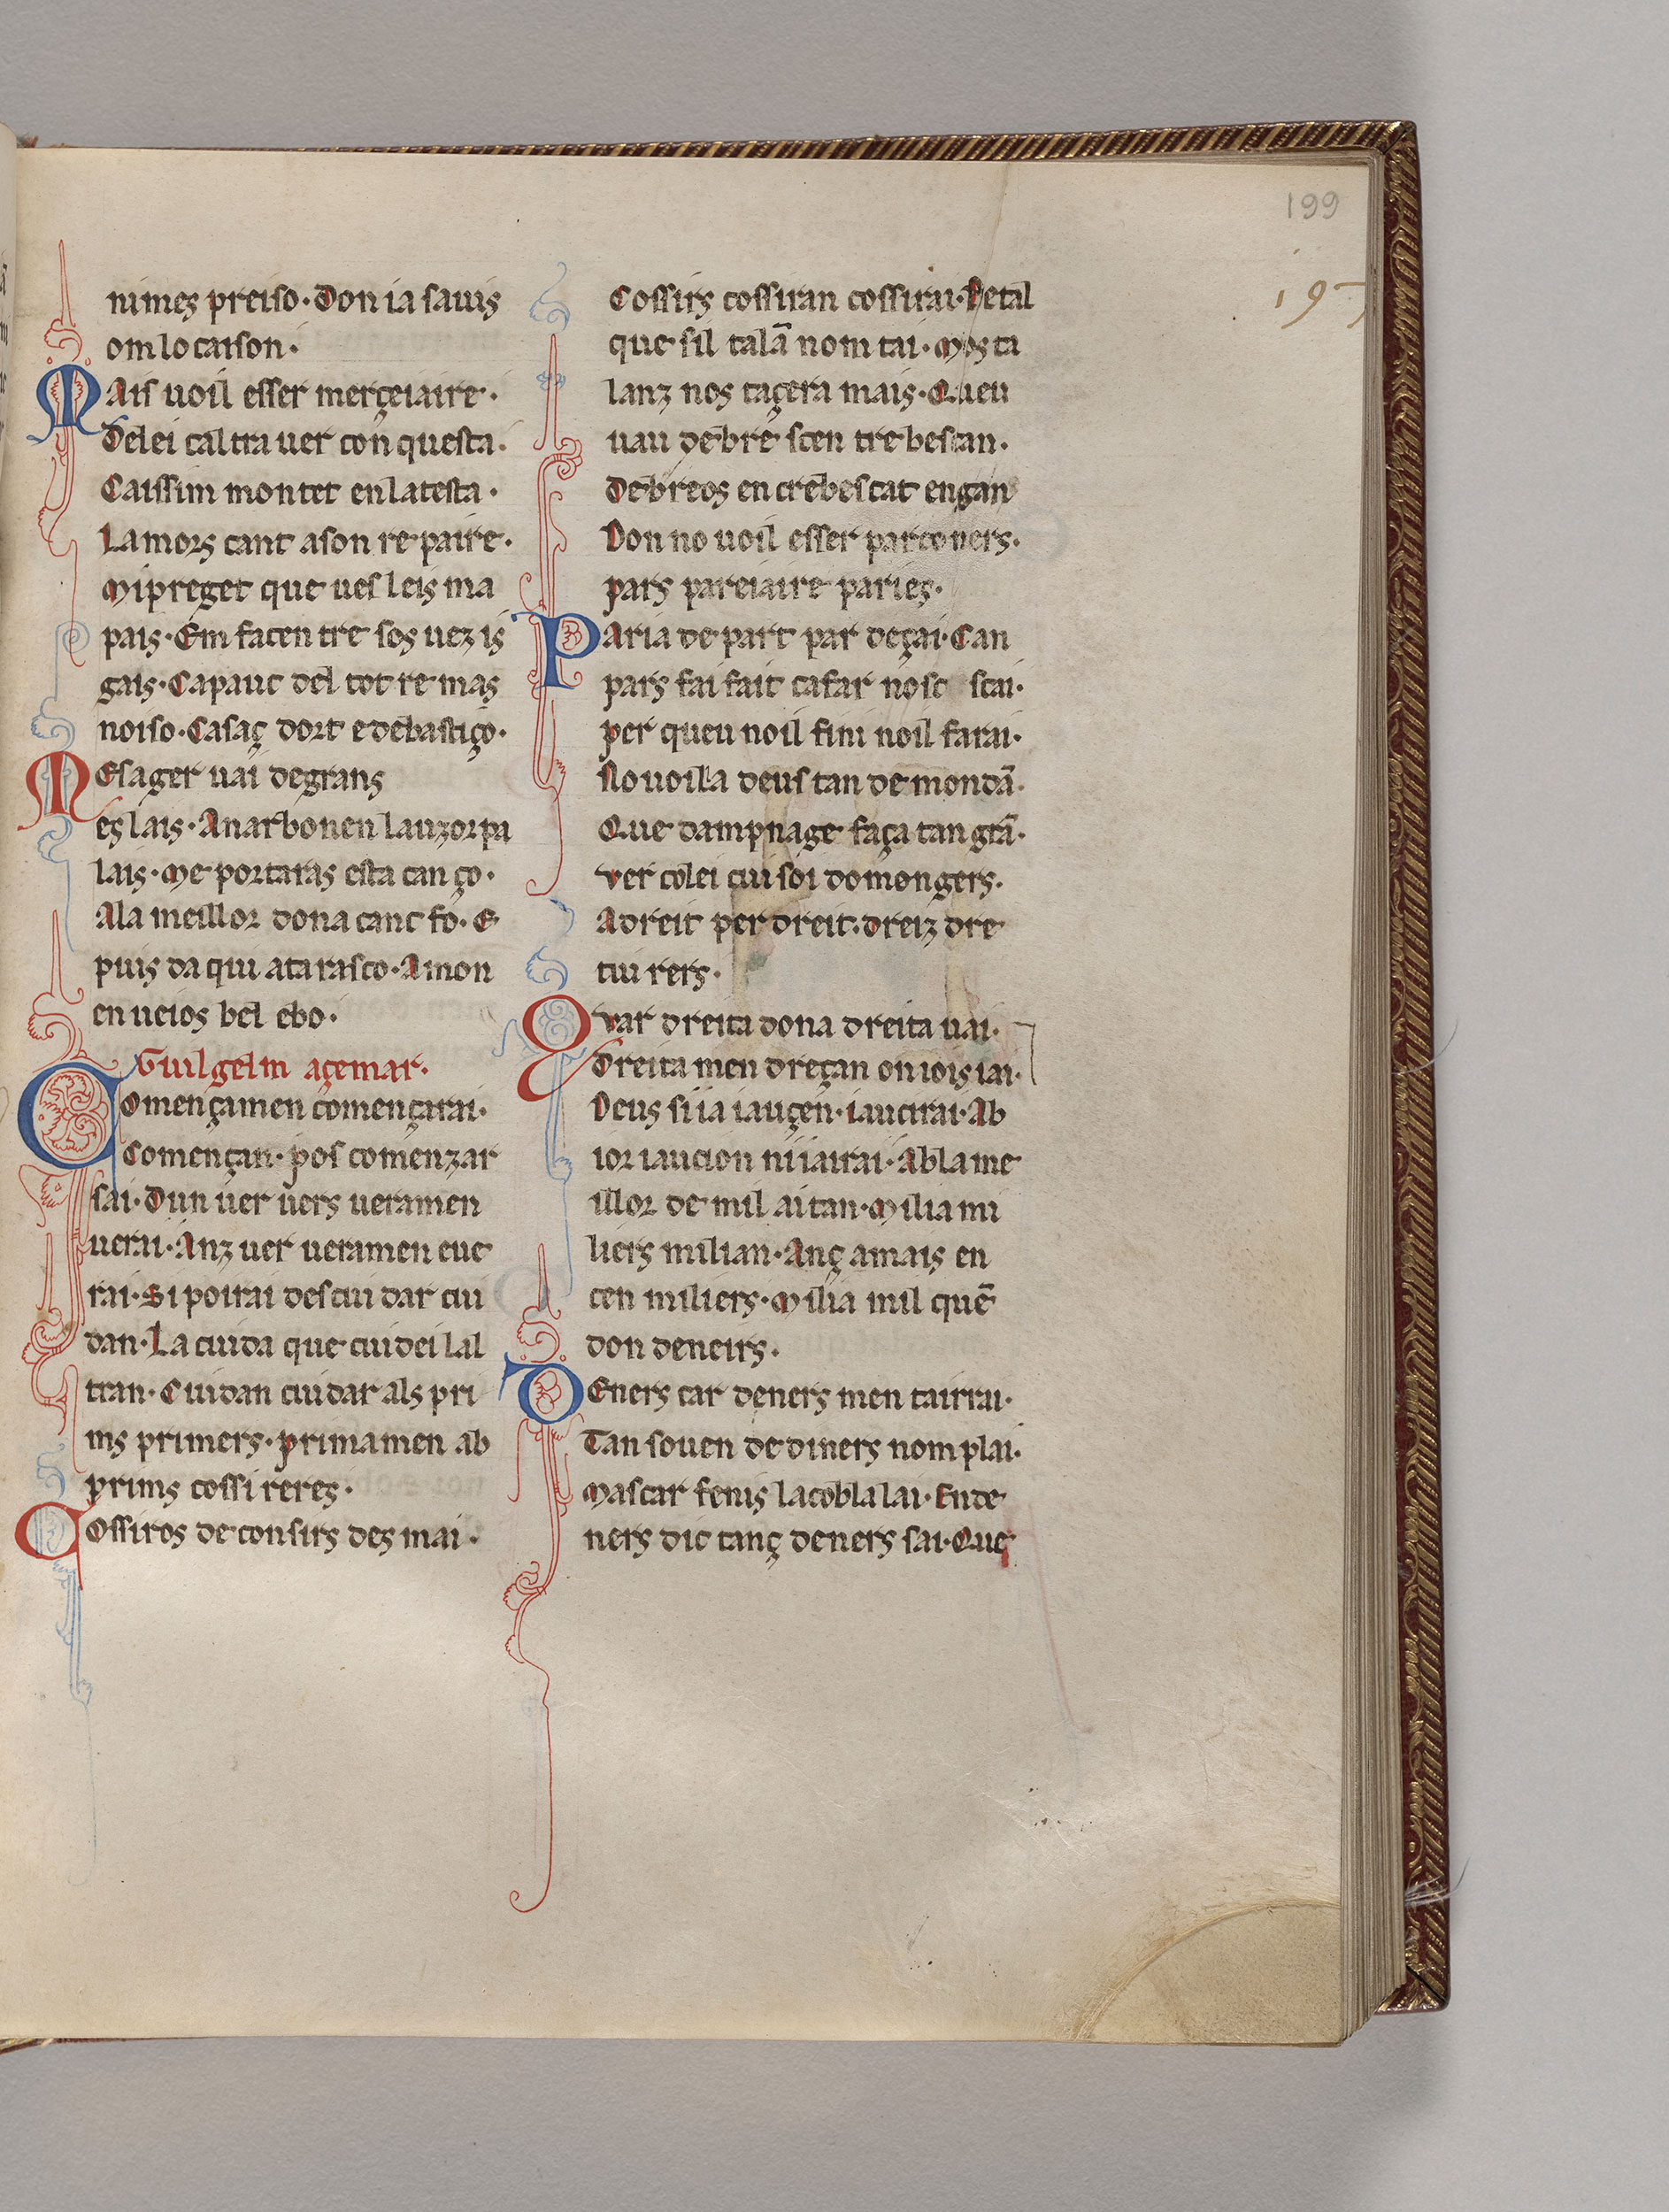 199
197
nimeꝫ preiſo· Don ia ſauis
om lo caiſon·
Mais uoil eſſer merçeiaire·
De lei cal tra uer con queſta·
Caiſſim montet en la teſta·
Lamors cant aſon re paire·
Mi preget que ueſ leis ma
pais· Em facen tre ſos uez is
gais· Capauc del tot re mas
noiſo· Caſaç dort e debaſtiço·
Meſager uai de grans
es lais· Anarbonen lauzor pa
lais· Me portaras eſta can ço·
Ala meillor dona canc fo· E
puis da qui ata raſco· Amon
en ueios bel ebo·
Guilgelm açemar·
Començamen començarai·
Començan· poſ comenzar
ſai· Dun uer uers ueramen
uerai· Anz uer ueramen eue
rai· Si poirai deſ cui dar cui
dan· La cuida que cuidei lal
tran· Cuidan cuidar als pri
ms primers· primamen ab
prims coſſi rereꝫ·
Coſſiros de conſirs des mai·
Coſſirs coſſiran coſſirai· De tal
que ſil talā nom tai· Mos ta
lanz nos taçera mais· Queu
uau de bre ſcen tre beſcan·
De breos en cre beſcat engan
Don no uoil eſſer parconers·
pars pareiaire parieꝫ·
Paria de part par deçai· Can
pars fai fait cafar noſc ſcai·
per queu noil fini noil farai·
No uoilla deuſ tan de mondā·
Que dampnage faça tan grā·
ver colei cui ſoi domongers·
A dreit per dreit· dreiz dre
tiu rers·
Quar dreita dona dreita uai·
Dreita men dreçan on iois iai·
Deus ſi ia iauçen· iaucirai· Ab
ior iaucion ni iairai· Ab la me
illor de mil aitan· Milia mi
liers milian· Anç amais en
cen miliers· Milia mil quē
don deneirs·
Deners car deners men tairiai·
Tan ſouen de diners nom plai·
Mas car fenis la cobla lai· En de
ners dic tanç deners ſai· Que